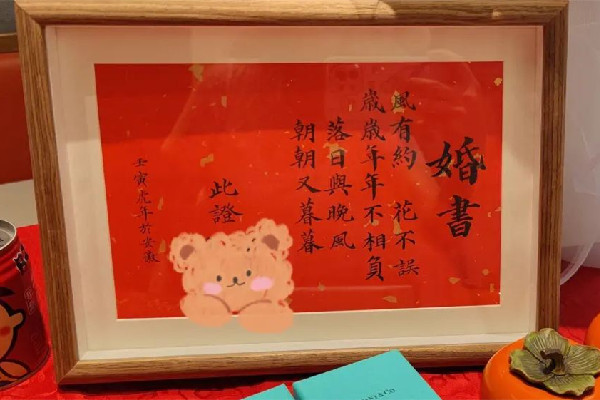 婚書
風有約 花不誤
歲歲年年不相負
落日與晚風
朝朝又暮暮
此證
壬寅虎年於安徽